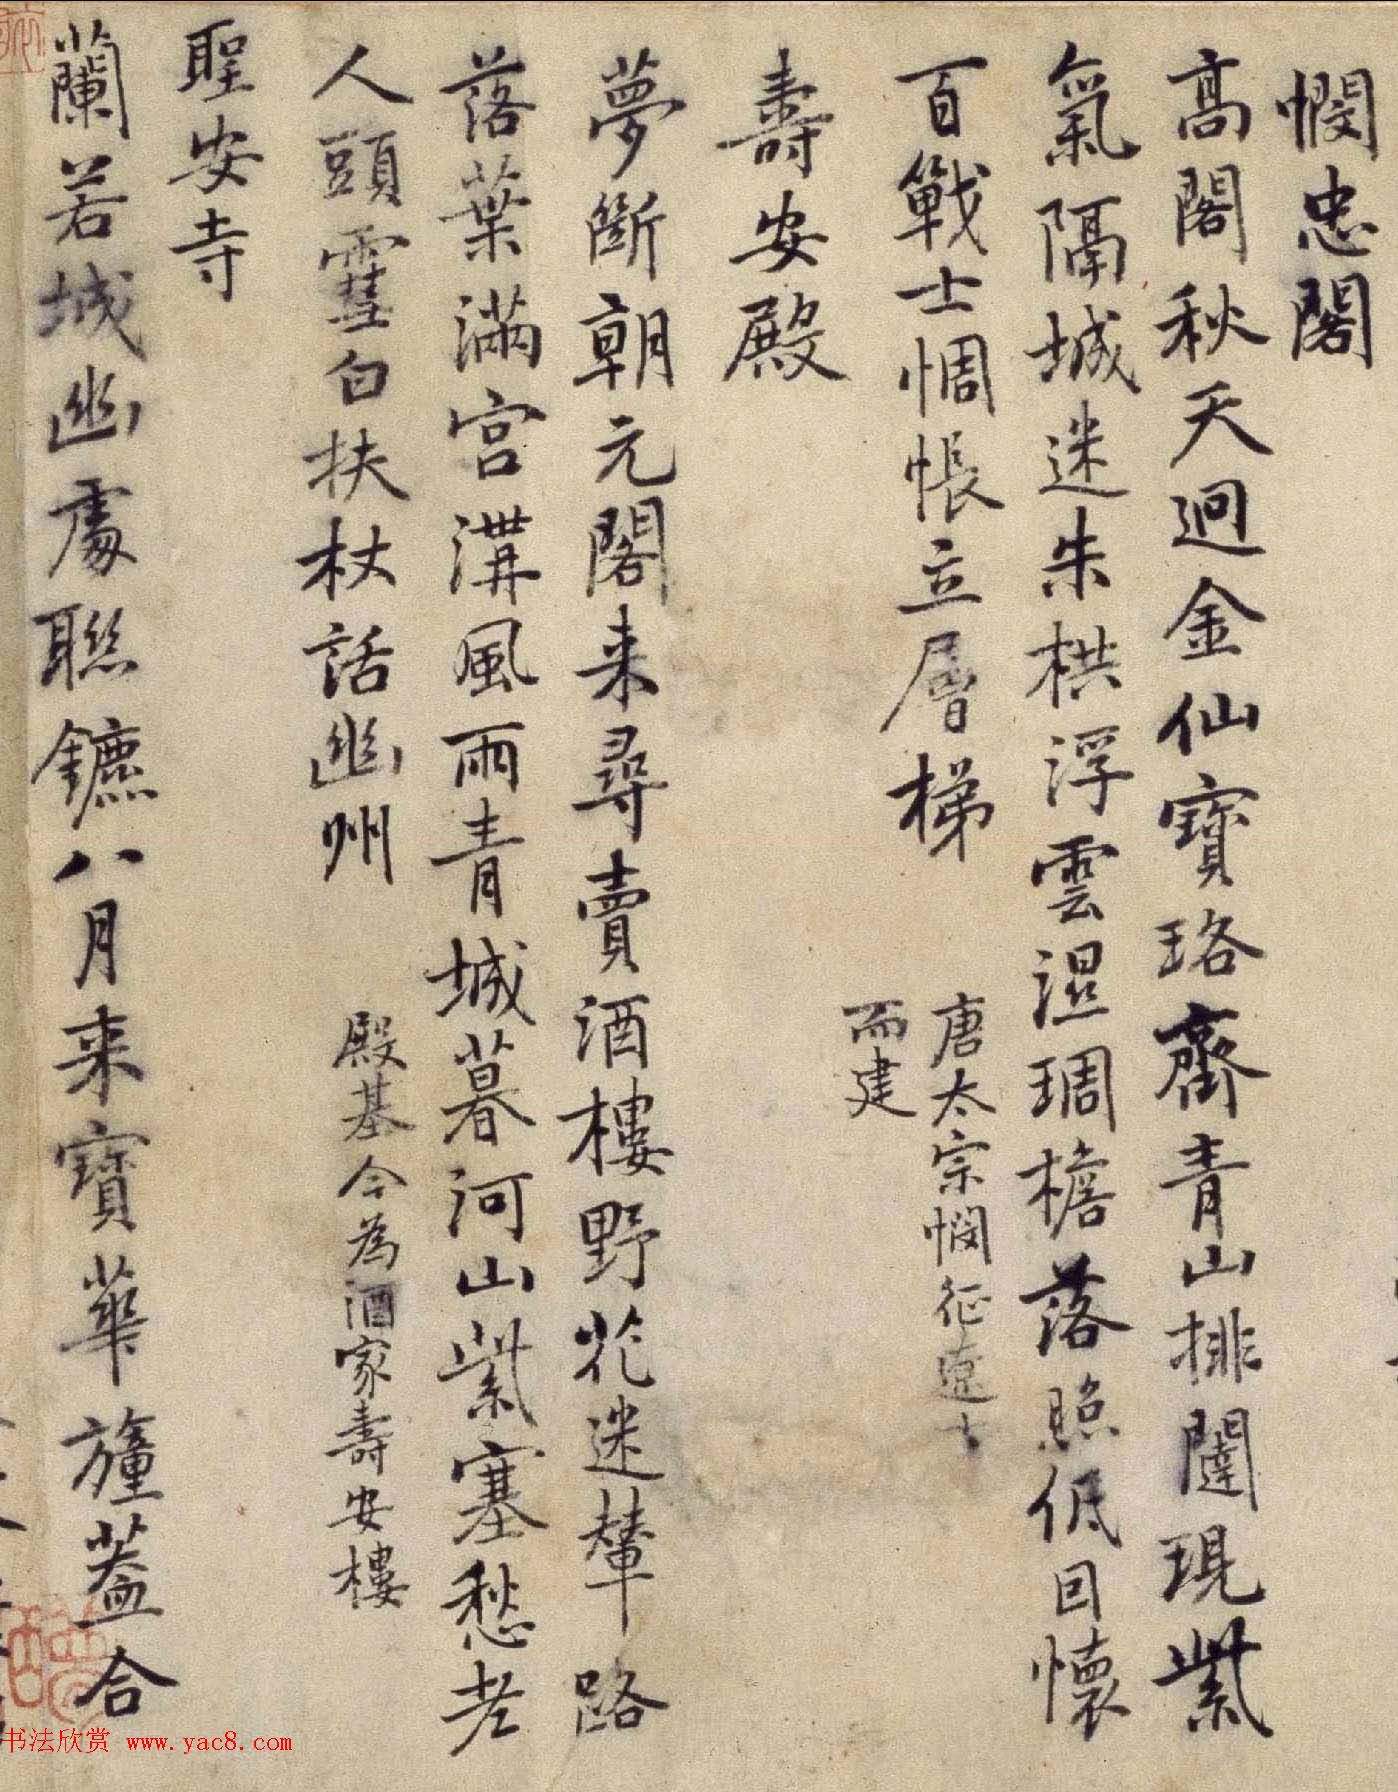 憫忠閣
高閣秋天迥金仙寶珞齋青山排闥現紫
氣隔城迷朱栱浮雲濕琱檐落照低回懷
百戰士惆悵立層梯
唐太宗憫征遼士
而建
壽安殿
夢斷朝元閣来尋賣酒樓野花迷輦路
落葉滿宮溝風雨青城暮河山紫塞愁老
人頭雪白扶杖話幽州
殿基今為酒家壽安樓
聖安寺
蘭若城幽處聯鑣八月来寶華幢蓋合
书法欣赏 www.yac8.com